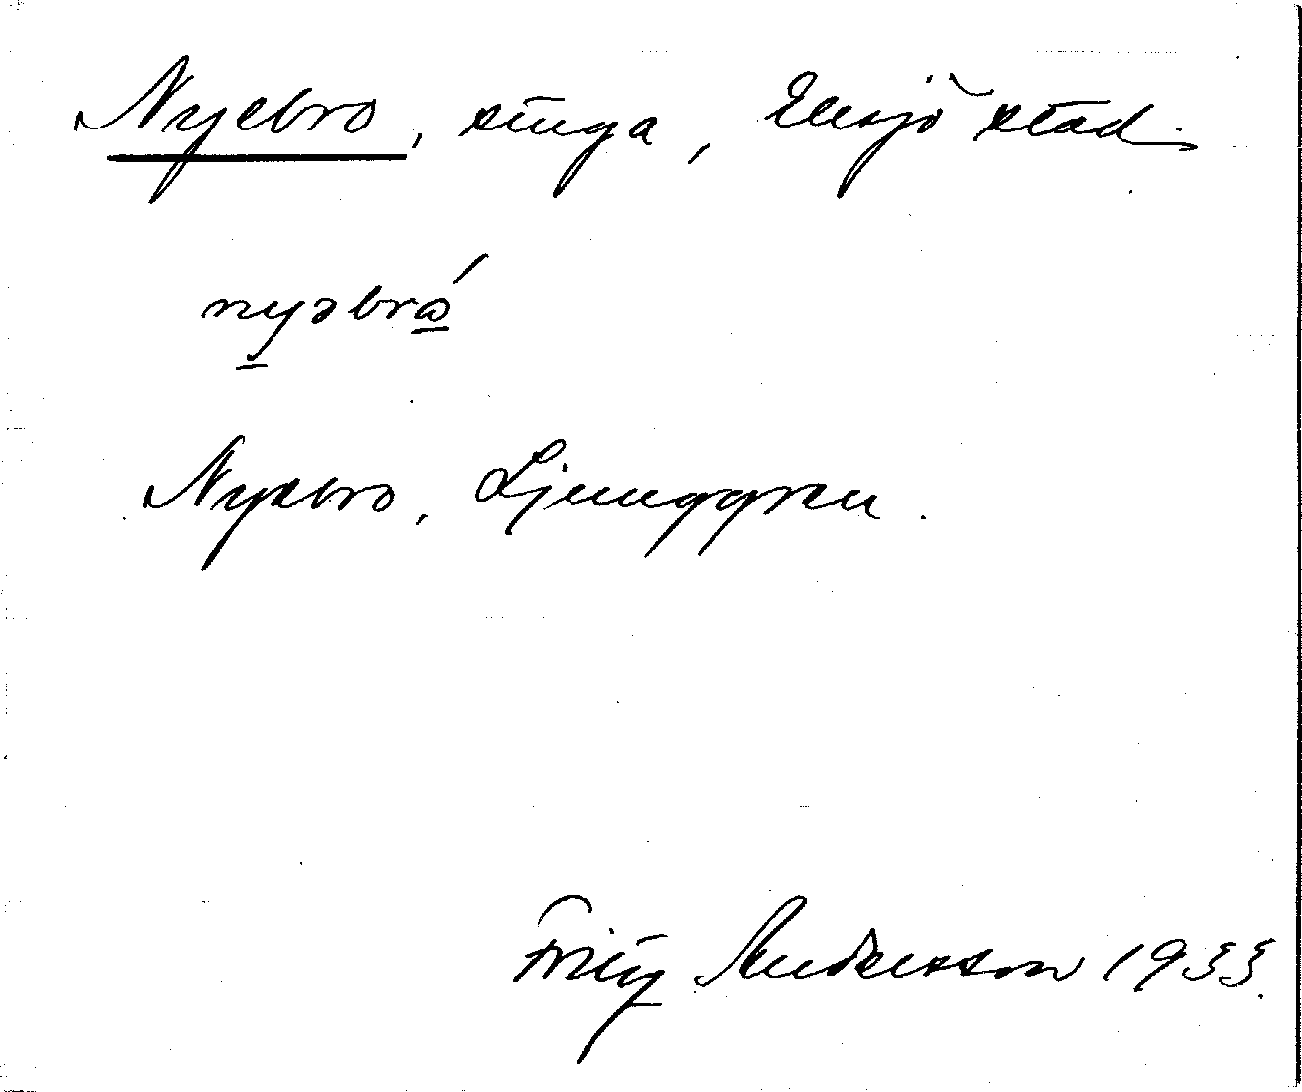 Nyebro, stuga, Eksjö stad.
nyəbrώ
Nyebro, Ljunggren.
Fritz Andersson 1933.